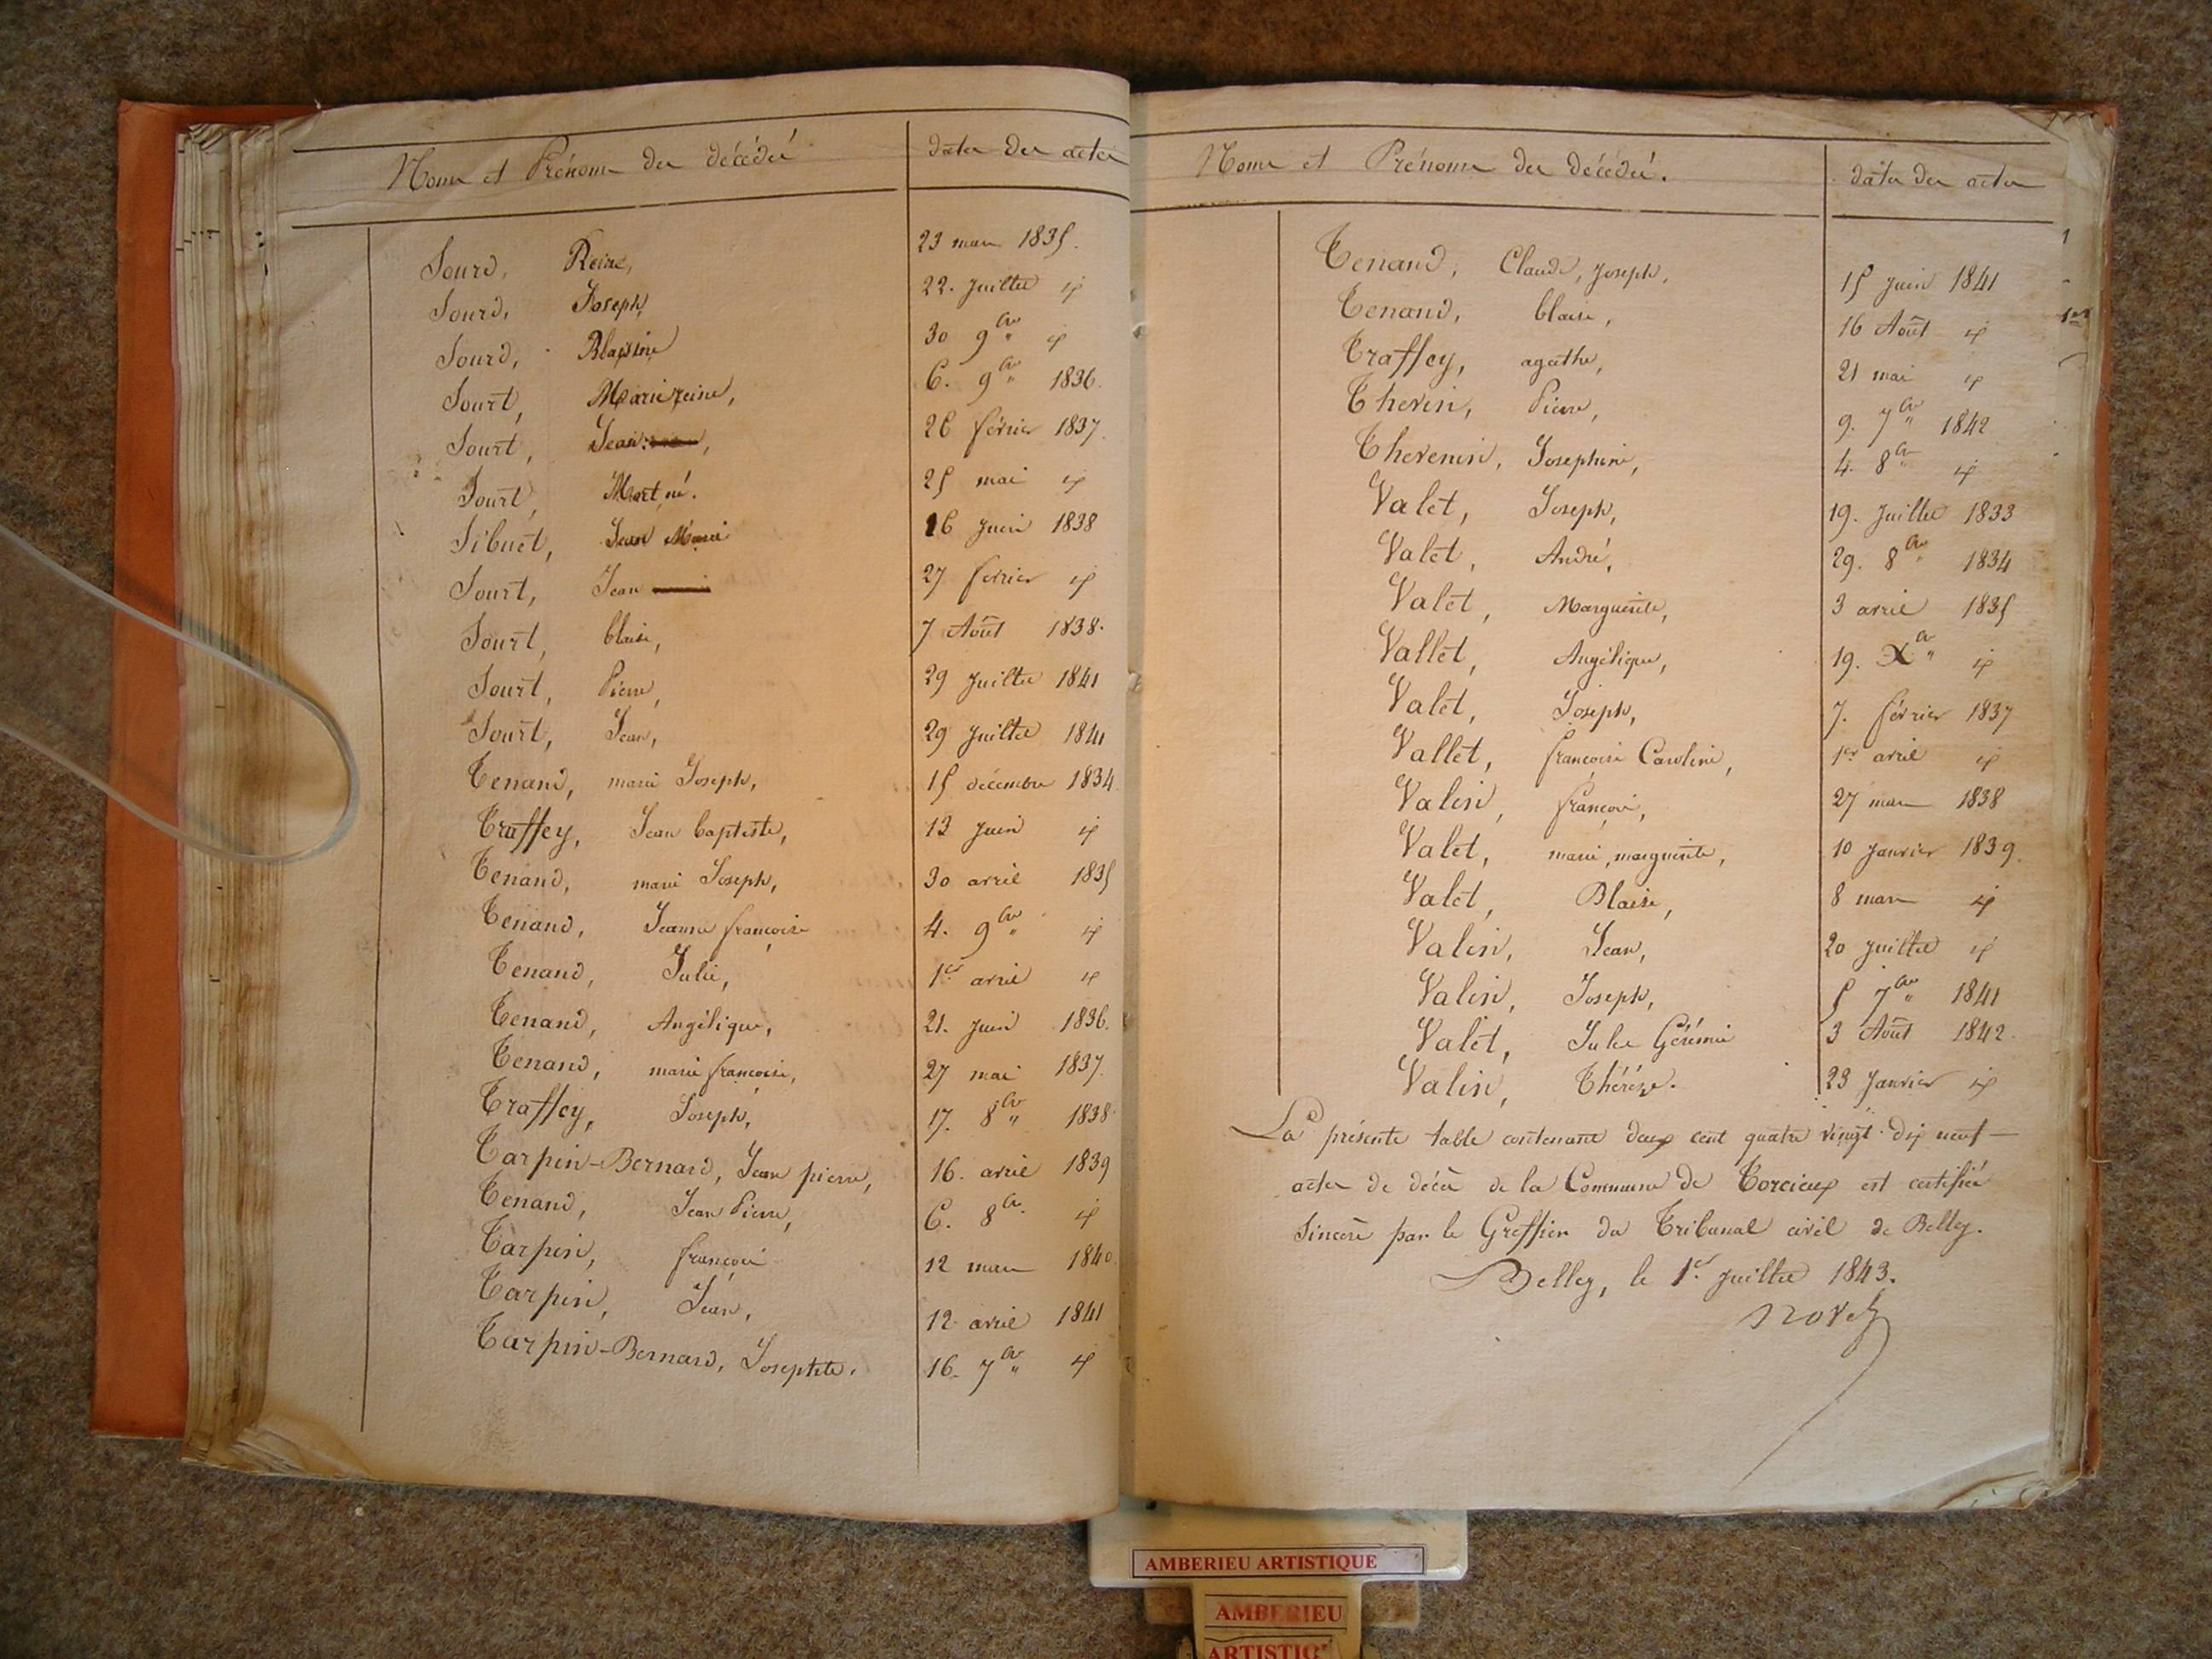 Noms et Prénoms des décédés dates des actes
Sourd, Reine, 23 mars 1835.
Sourd, Joseph, 22. Juillet id
Sourd, Blaisine 30 9bre id
Sourt, Marie reine, 6. 9bre 1836.
Sourt, Jean, 26 février 1837.
Sourt, Mort né. 25 mai id
Sibuet, Jean Marie 16 Juin 1838
Sourt, Jean 27 février id
Sourt, blaise, 7 Août 1838.
Sourt, Pierre, 29 Juillet 1841
Sourt, Jean, 29 Juillet 1841
Tenand, marie Joseph, 15 décembre 1834
Traffey, Jean baptiste, 12 Juin id
Tenand, marie Joseph, 30 avril 1835
Tenand, Jeanne françoise 4. 9bre id
Tenand, Julie, 1er avril id
Tenand, Angélique, 21. Juin 1836.
Tenand, marie françoise, 27 mai 1837.
Traffey, Joseph, 17. 8bre 1838
Tarpin-Bernard, Jean pierre, 16. avril 1839
Tenand, Jean Pierre, 6. 8bre id
Tarpin, françois 12 mars 1840
Tarpin, Jean, 12 avril 1841
Tarpin-Bernard, Josephte. 16. 7bre id
Noms et Prénoms des décédés. dates des actes
Tenand, Claude, Joseph, 15 Juin 1841
Tenand, blaise, 16 Août id
Traffey, agathe, 21 mai id
Thevin, Pierre, 9. 7bre 1842
Thevenin, Josephine, 4. 8bre id
Valet, Joseph, 19. Juillet 1833
Valet, André, 29. 8bre 1834
Valet, Marguerite, 3 avril 1835
Vallet, Angélique, 19. Xbre id
Valet, Joseph, 7. février 1837
Vallet, françoise Caroline, 1er avril id
Valin, françois, 27 mars 1838
Valet, marie, marguerite, 10 Janvier 1839.
Valet, Blaise, 8 mars id
Valin, Jean, 20 Juillet id
Valin, Joseph, 5 7bre 1841
Valet, Jules Gérémie 3 Août 1842.
Valin, Thérèze. 23 Janvier id
La présente table contenant deux cent quatre vingt dix neuf
actes de décès de la Commune de Torcieux est certifiée
Sincère par le Greffier du Tribunal civil de Belley.
Belley, le 1er Juillet 1843.
AMBERIEU ARTISTIQUE
AMBERIEU